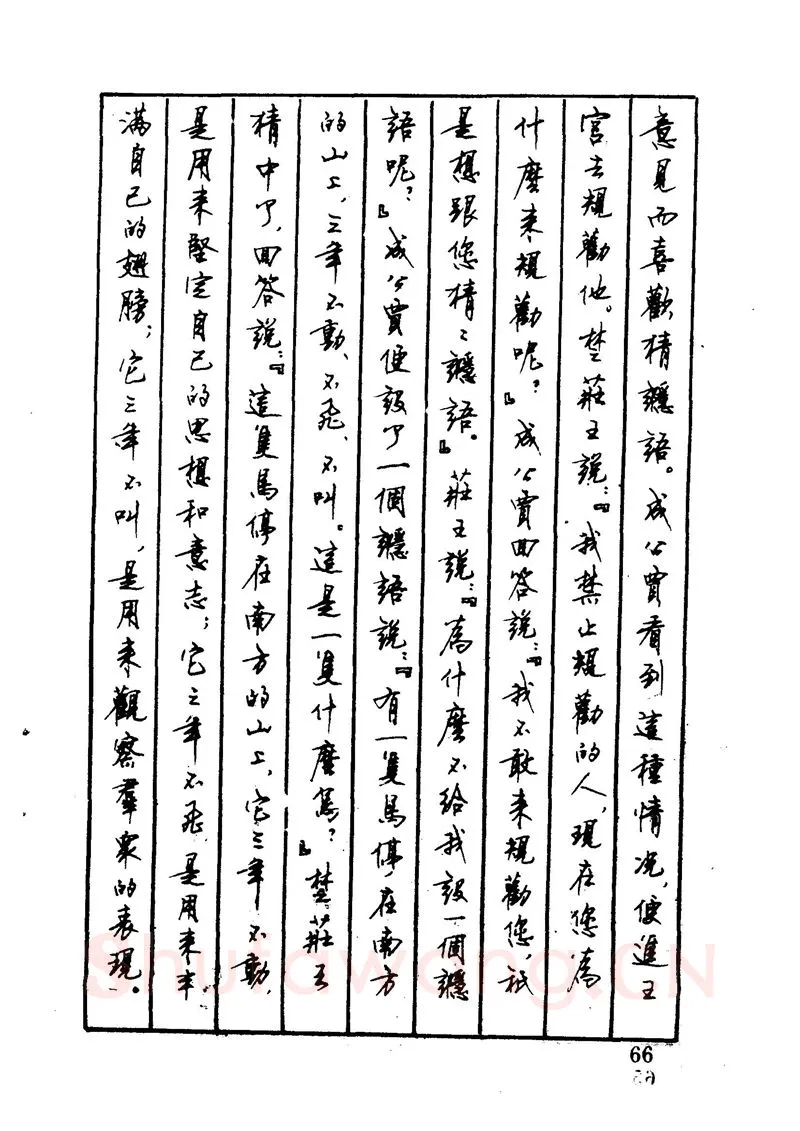 意見而喜歡猜讔語。成公賈看到這種情况，便進王
宫去規勸他。楚莊王説：『我禁止規勸的人，現在您為
什麽来規勸呢？』成公賈回答説：『我不敢来規勸您，祇
是想跟您猜〻讔語。』莊王説：『為什麽不給我設一個讔
語呢？』成公賈便設了一個讔語説：『有一隻鳥停在南方
的山上，三年不動、不飛、不叫。這是一隻什麽鳥？』楚莊王
猜中了，回答説：『這隻鳥停在南方的山上，它三年不動，
是用来堅定自己的思想和意志；它三年不飛，是用来丰
满自己的翅膀；它三年不叫，是用来觀察羣衆的表現。
66
Shufawang.CN